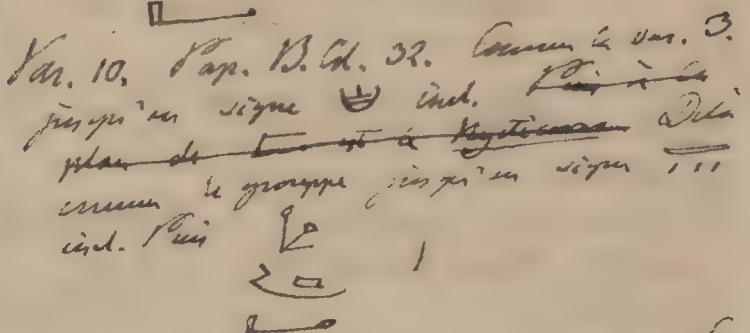 Var. 10. Pap. B. Cd. 32. Comme la var. 3.
jusqu'au signe incl. Puis à la
place de est à Delà
comme le grouppe jusqu'au signe
incl. Puis